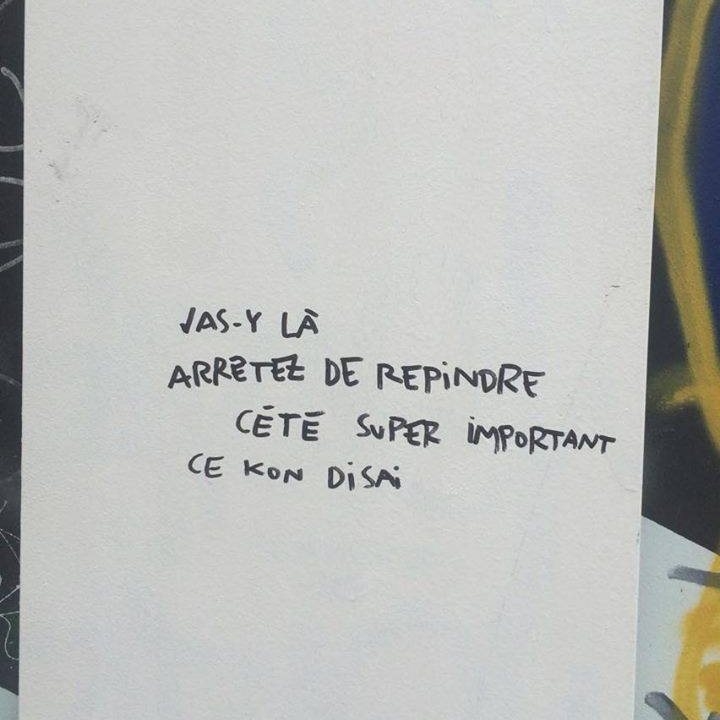 VAS-Y LÀ
ARRÊTEZ DE REPiNDRE
CÉTÉ SUPER iMPORTANT
CE KON DiSAi